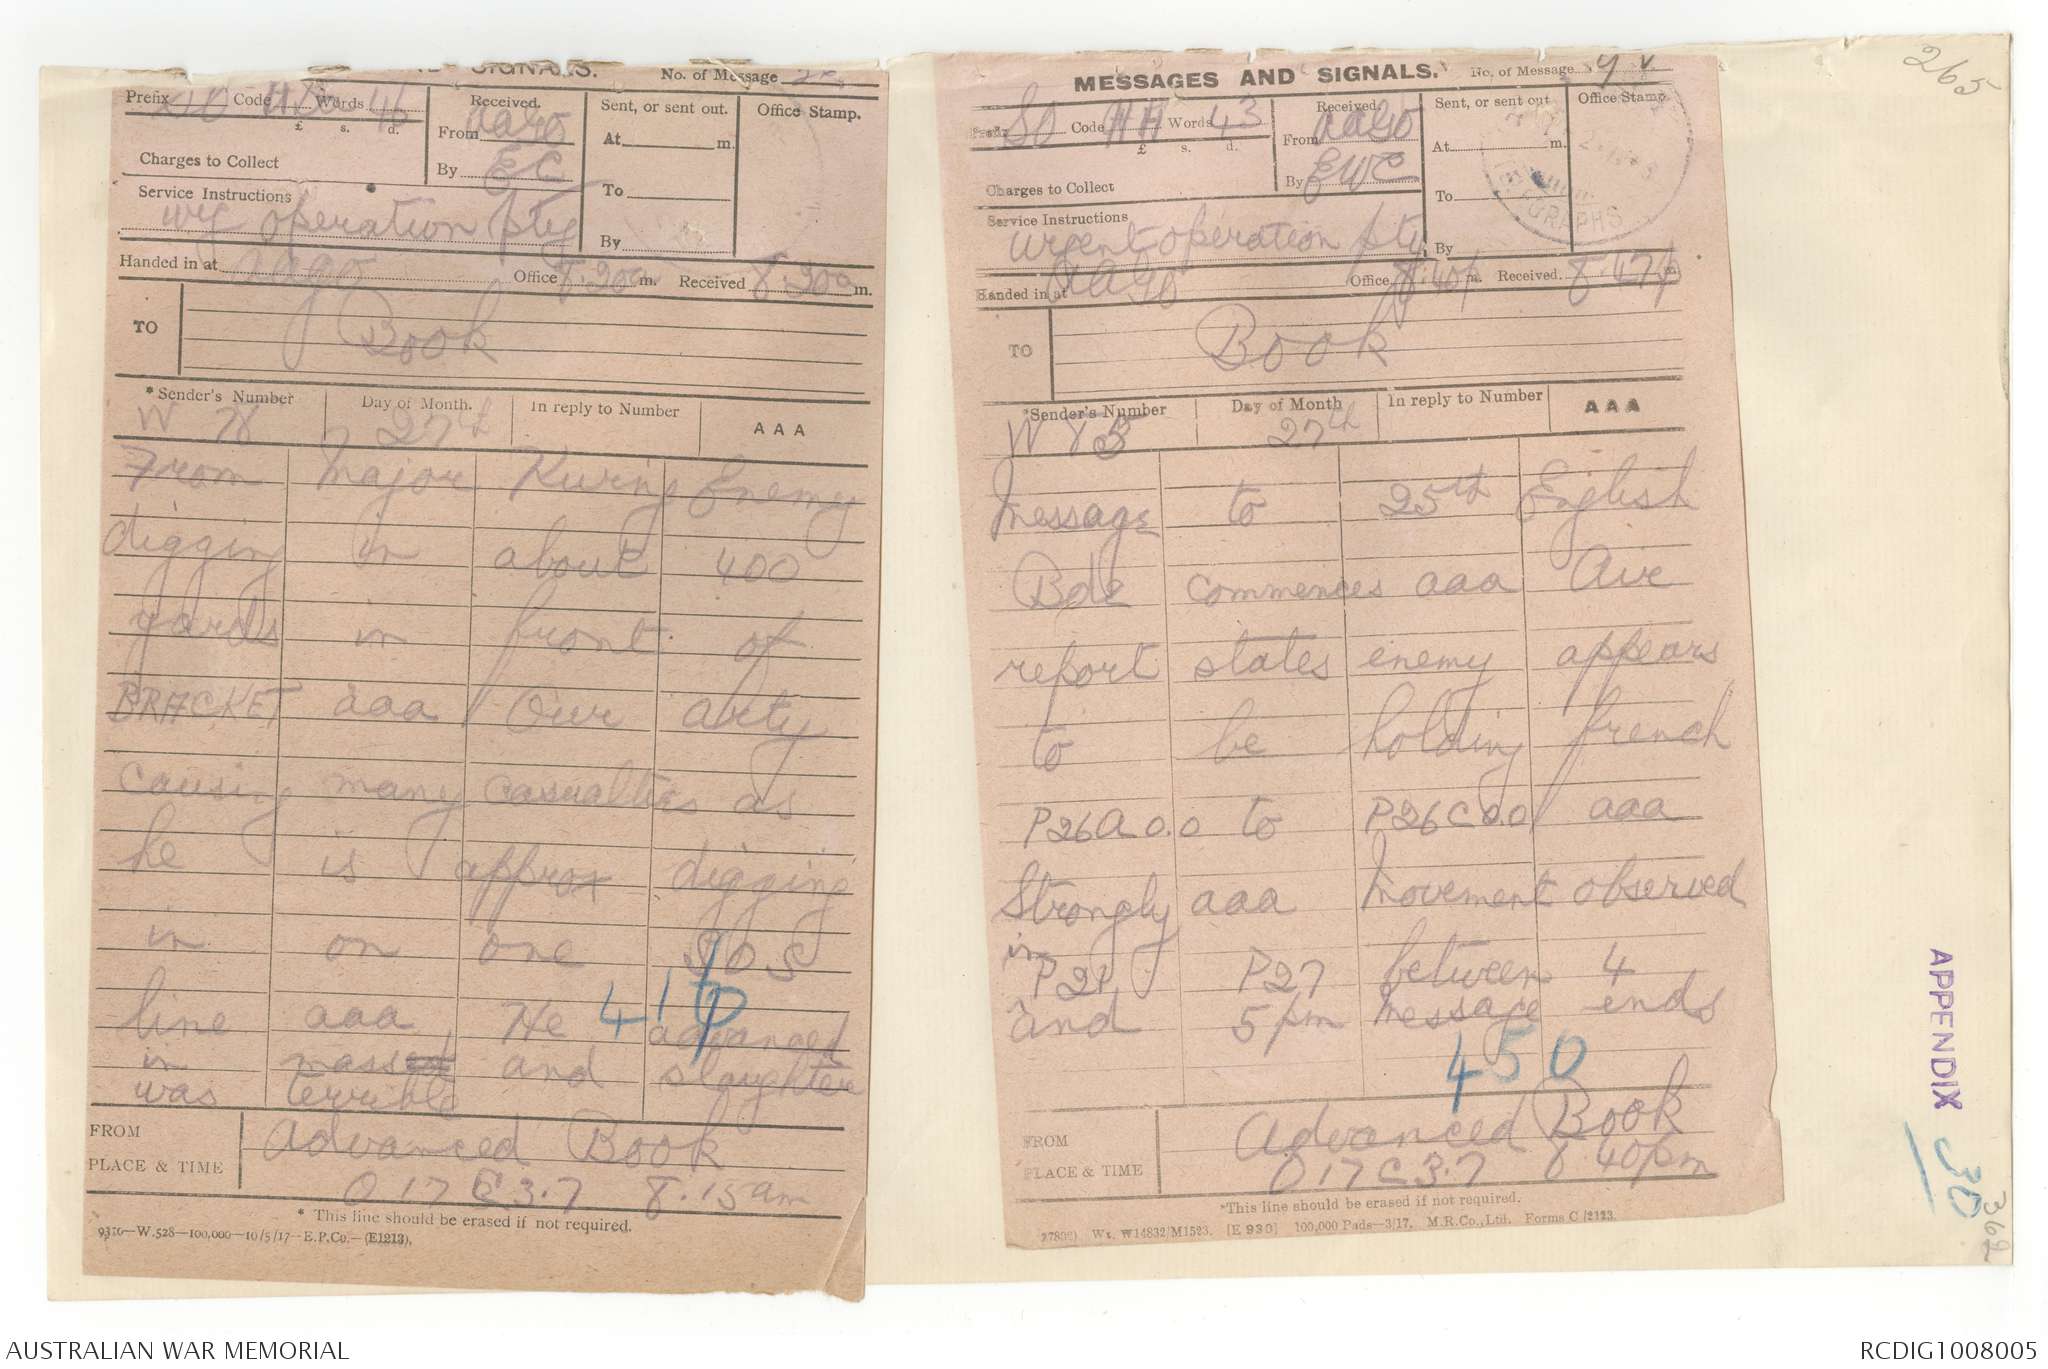 265
SIGNALS. No. of Message
Prefix SO Code Words 46
£ s. d.
Received. From aago By EC
Sent, or sent out. At m. To By
Office Stamp.
Charges to Collect
Service Instructions
urg operation pty
Handed in at aago Office 8.20a m. Received 8.20a m.
TO Book
*Sender's Number Day of Month. In reply to Number AAA
W 78 27th
From Major Enemy
digging in about 400
yards in front of
BRACKET aaa Our arty
causing many casualties as
he is approx digging
in on one SOS
line aaa He advanced
in mass and slaughter
was terrible
FROM Advanced Book
PLACE & TIME O 17 C 3.7 8.15am
* This line should be erased if not required.
W.528—100,000—10/5/17—E.P.Co.—(E1213).
MESSAGES AND SIGNALS. No. of Message
Prefix SO Code HH Words 43
£ s. d.
Received. From aago By EWC
Sent, or sent out At m. To By
Office Stamp.
GRAPHS
Charges to Collect
Service Instructions
urgent operation pty
Handed in at aago Office 8.40p m. Received. 8.47p m
TO Book
*Sender's Number Day of Month In reply to Number AAA
27th
Message to 25th English
Bde commences aaa Air
report states enemy appears
to be holding french
P26A 0.0 to P26C 0.0 aaa
Strongly aaa Movement observed
in
P21 P27 between 4
and 5 pm message ends
450
FROM Advanced Book
PLACE & TIME O 17 C 3.7 8.40pm
*This line should be erased if not required.
Wt. W14832/M1523. [E 930] 100,000 Pads—3/17. M.R.Co.,Ltd. Forms C/2123.
APPENDIX 30
362
AUSTRALIAN WAR MEMORIAL
RCDIG1008005